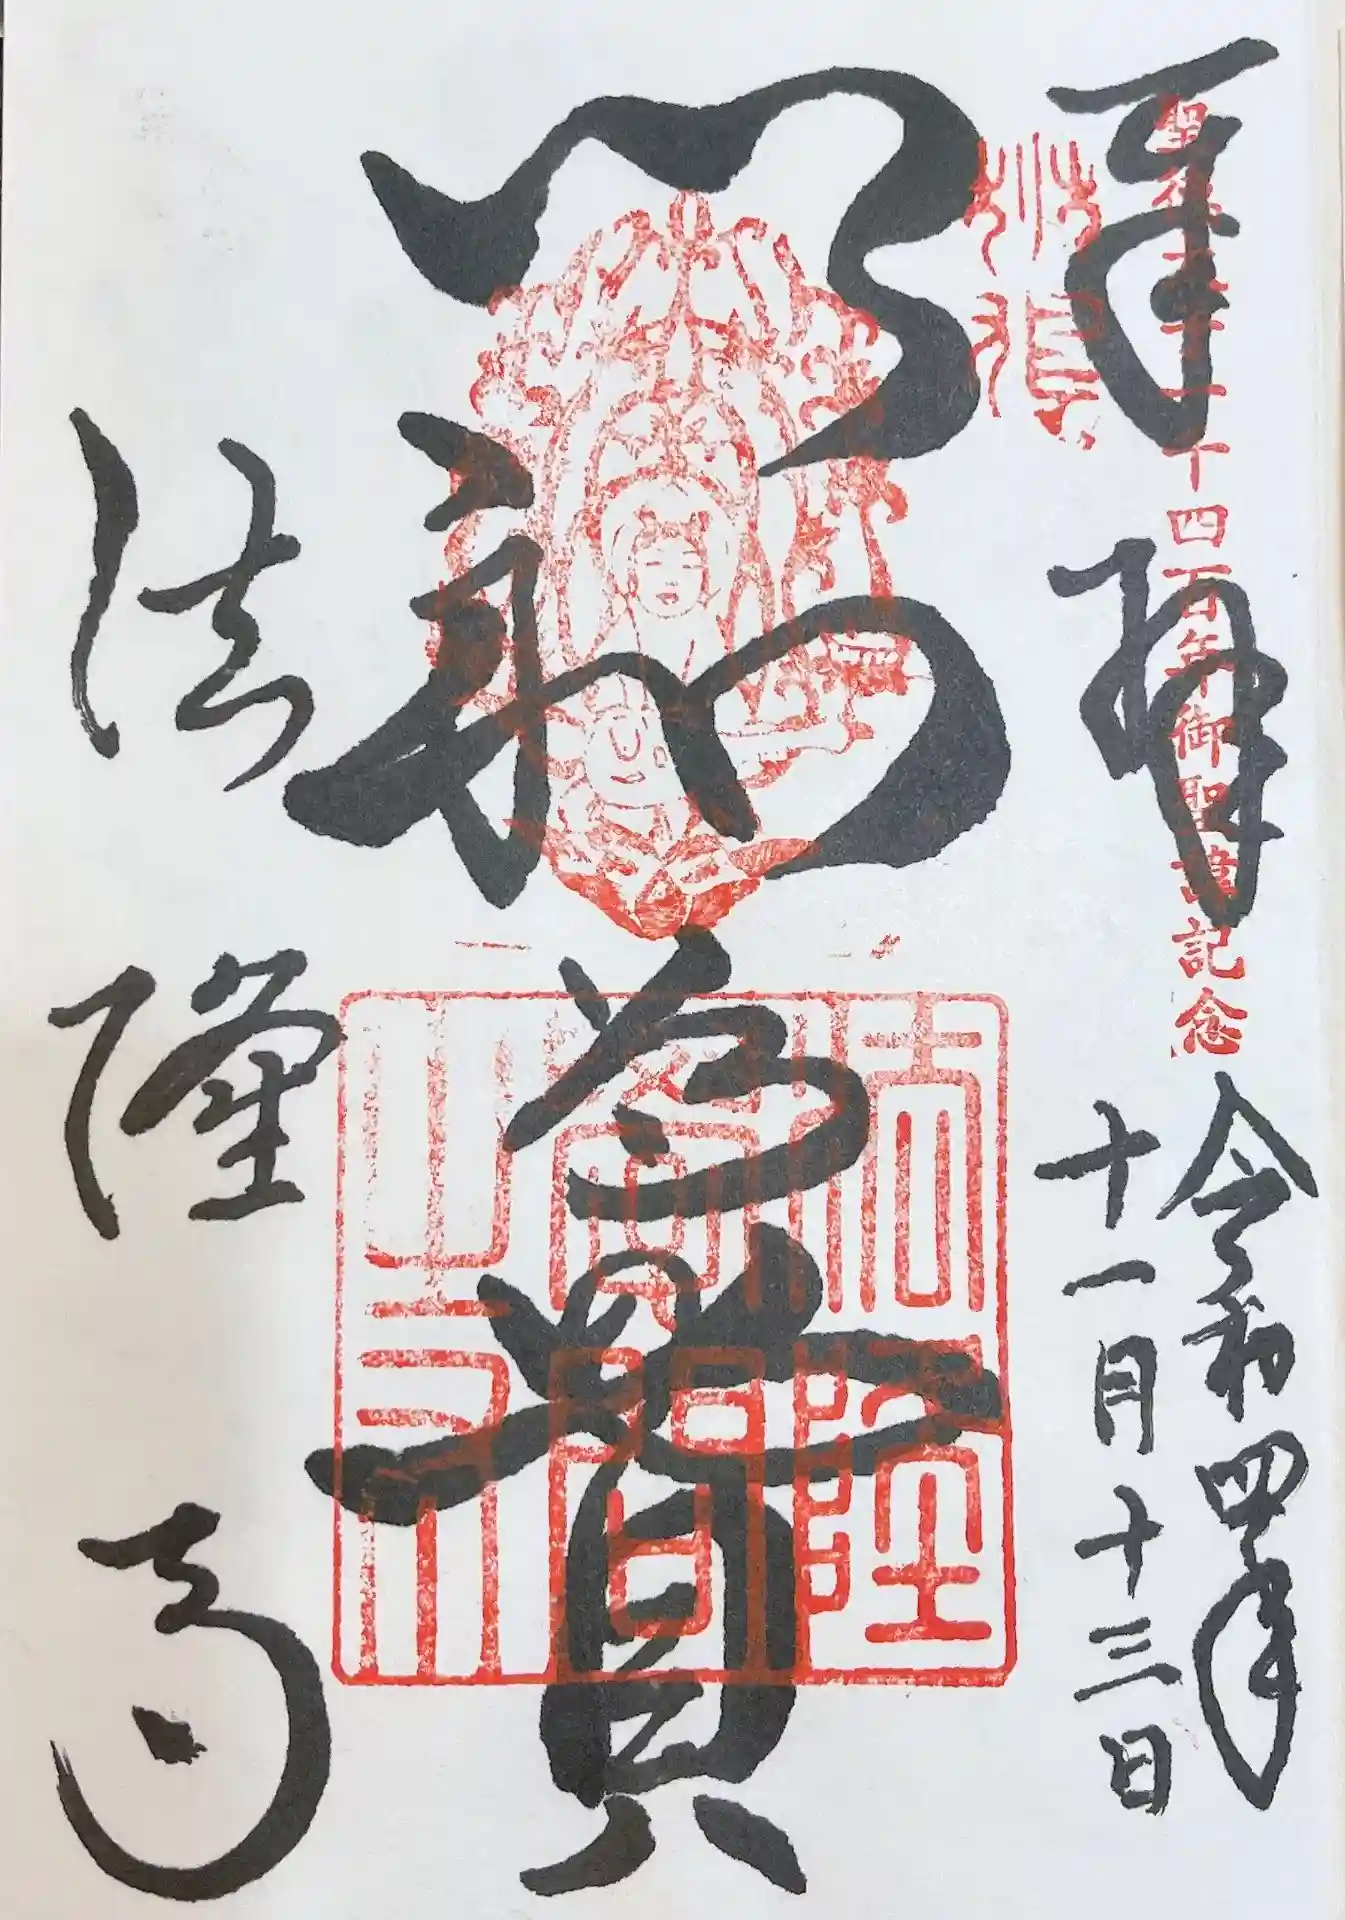 奉拝
聖徳太子一千四百年御聖諱記念
令和四年
十一月十三日
以和為貴
法隆寺